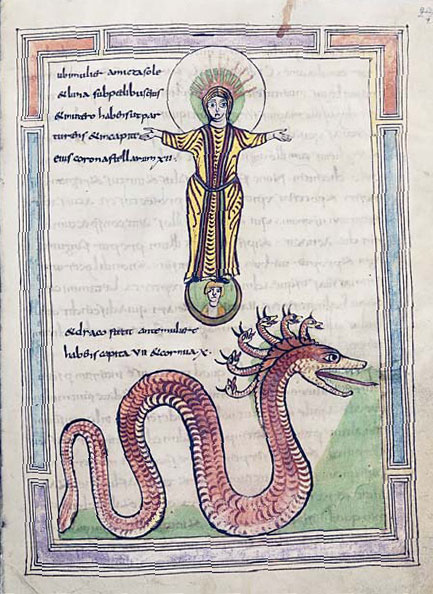 ubi mulier amicta sole
& luna sub pedibus eius
& in utero habens & par
turiens & in capite
eius corona stellarum xii.
& draco stetit ante mulierē
habens capita VII & cornua X.